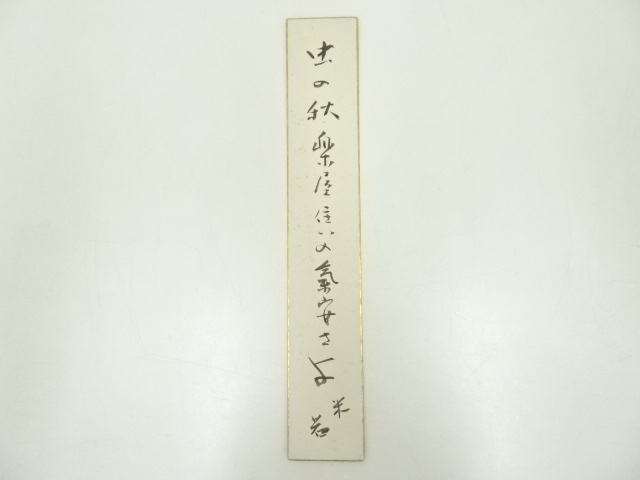 虫の秋楽屋住いの氣安さよ
米若